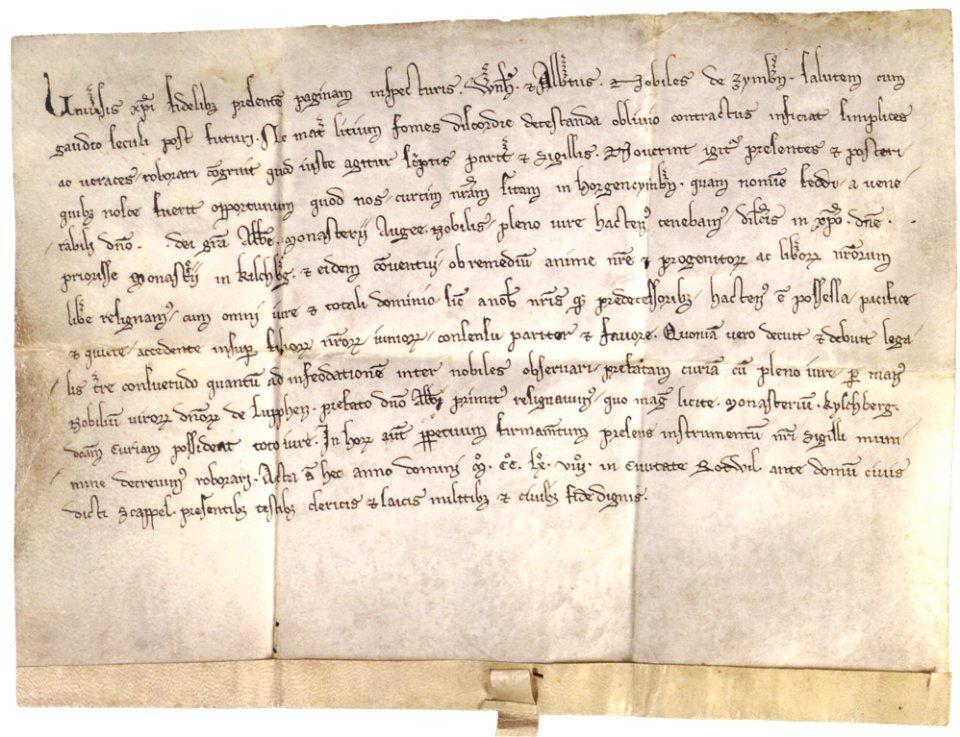 Univsis xpi fidelibz presentē paginam inspecturis. Wnh. & Albtus. Nobiles de zymbn. salutem cum
gaudio seculi post futuri. Ne mat litium fomes discordie detestanda oblivio contractus inficiat simplices
ac veraces roborari cōgruit quod iuste agitur scptis parit & sigillis. Noverint igit presentes & posteri
quibz nosce fuerit opportunum quod nos curtim nram sitam in horgencymbn. quam nomine feodi a vene
rabili dno. dei gra Abbe. Monasterii Augee. Nobilis pleno iure hacten tenebam dilcis in xpo. dne.
priorisse Monastii in kilchbg. & eidem cōventui ob remediū anime nre & progenitorz ac liborz nrorum
libe resignam cum omni iure & totali dominio sic anob nris qz predecessoribz hacten ē possessa pacifice
& quiete accedente insup liborz nrorz iuniorz consensu pariter & favore. Quoniā vero decuit & debuit lega
lis tre consuetudo quantū ad infeodationē inter nobiles observari prefatam curiā cū pleno iure p man
Nobiliū virorz dnorz de Lupphen. prefato dno Abbi primit resignavim quo mag licite. Monasteriū. kylchberg.
dcam curiam possideat toto iure. In horz aut ppetuum firmamtum presens instrumentū nri sigilli muni
mine decrevim roborari. Acta s hec anno domini M. CC. LX. VIII. in civitate Rodwil. ante domū civis
dicti Scappel. presentibz testibz clericis & laicis militibz & civibz fide dignis.